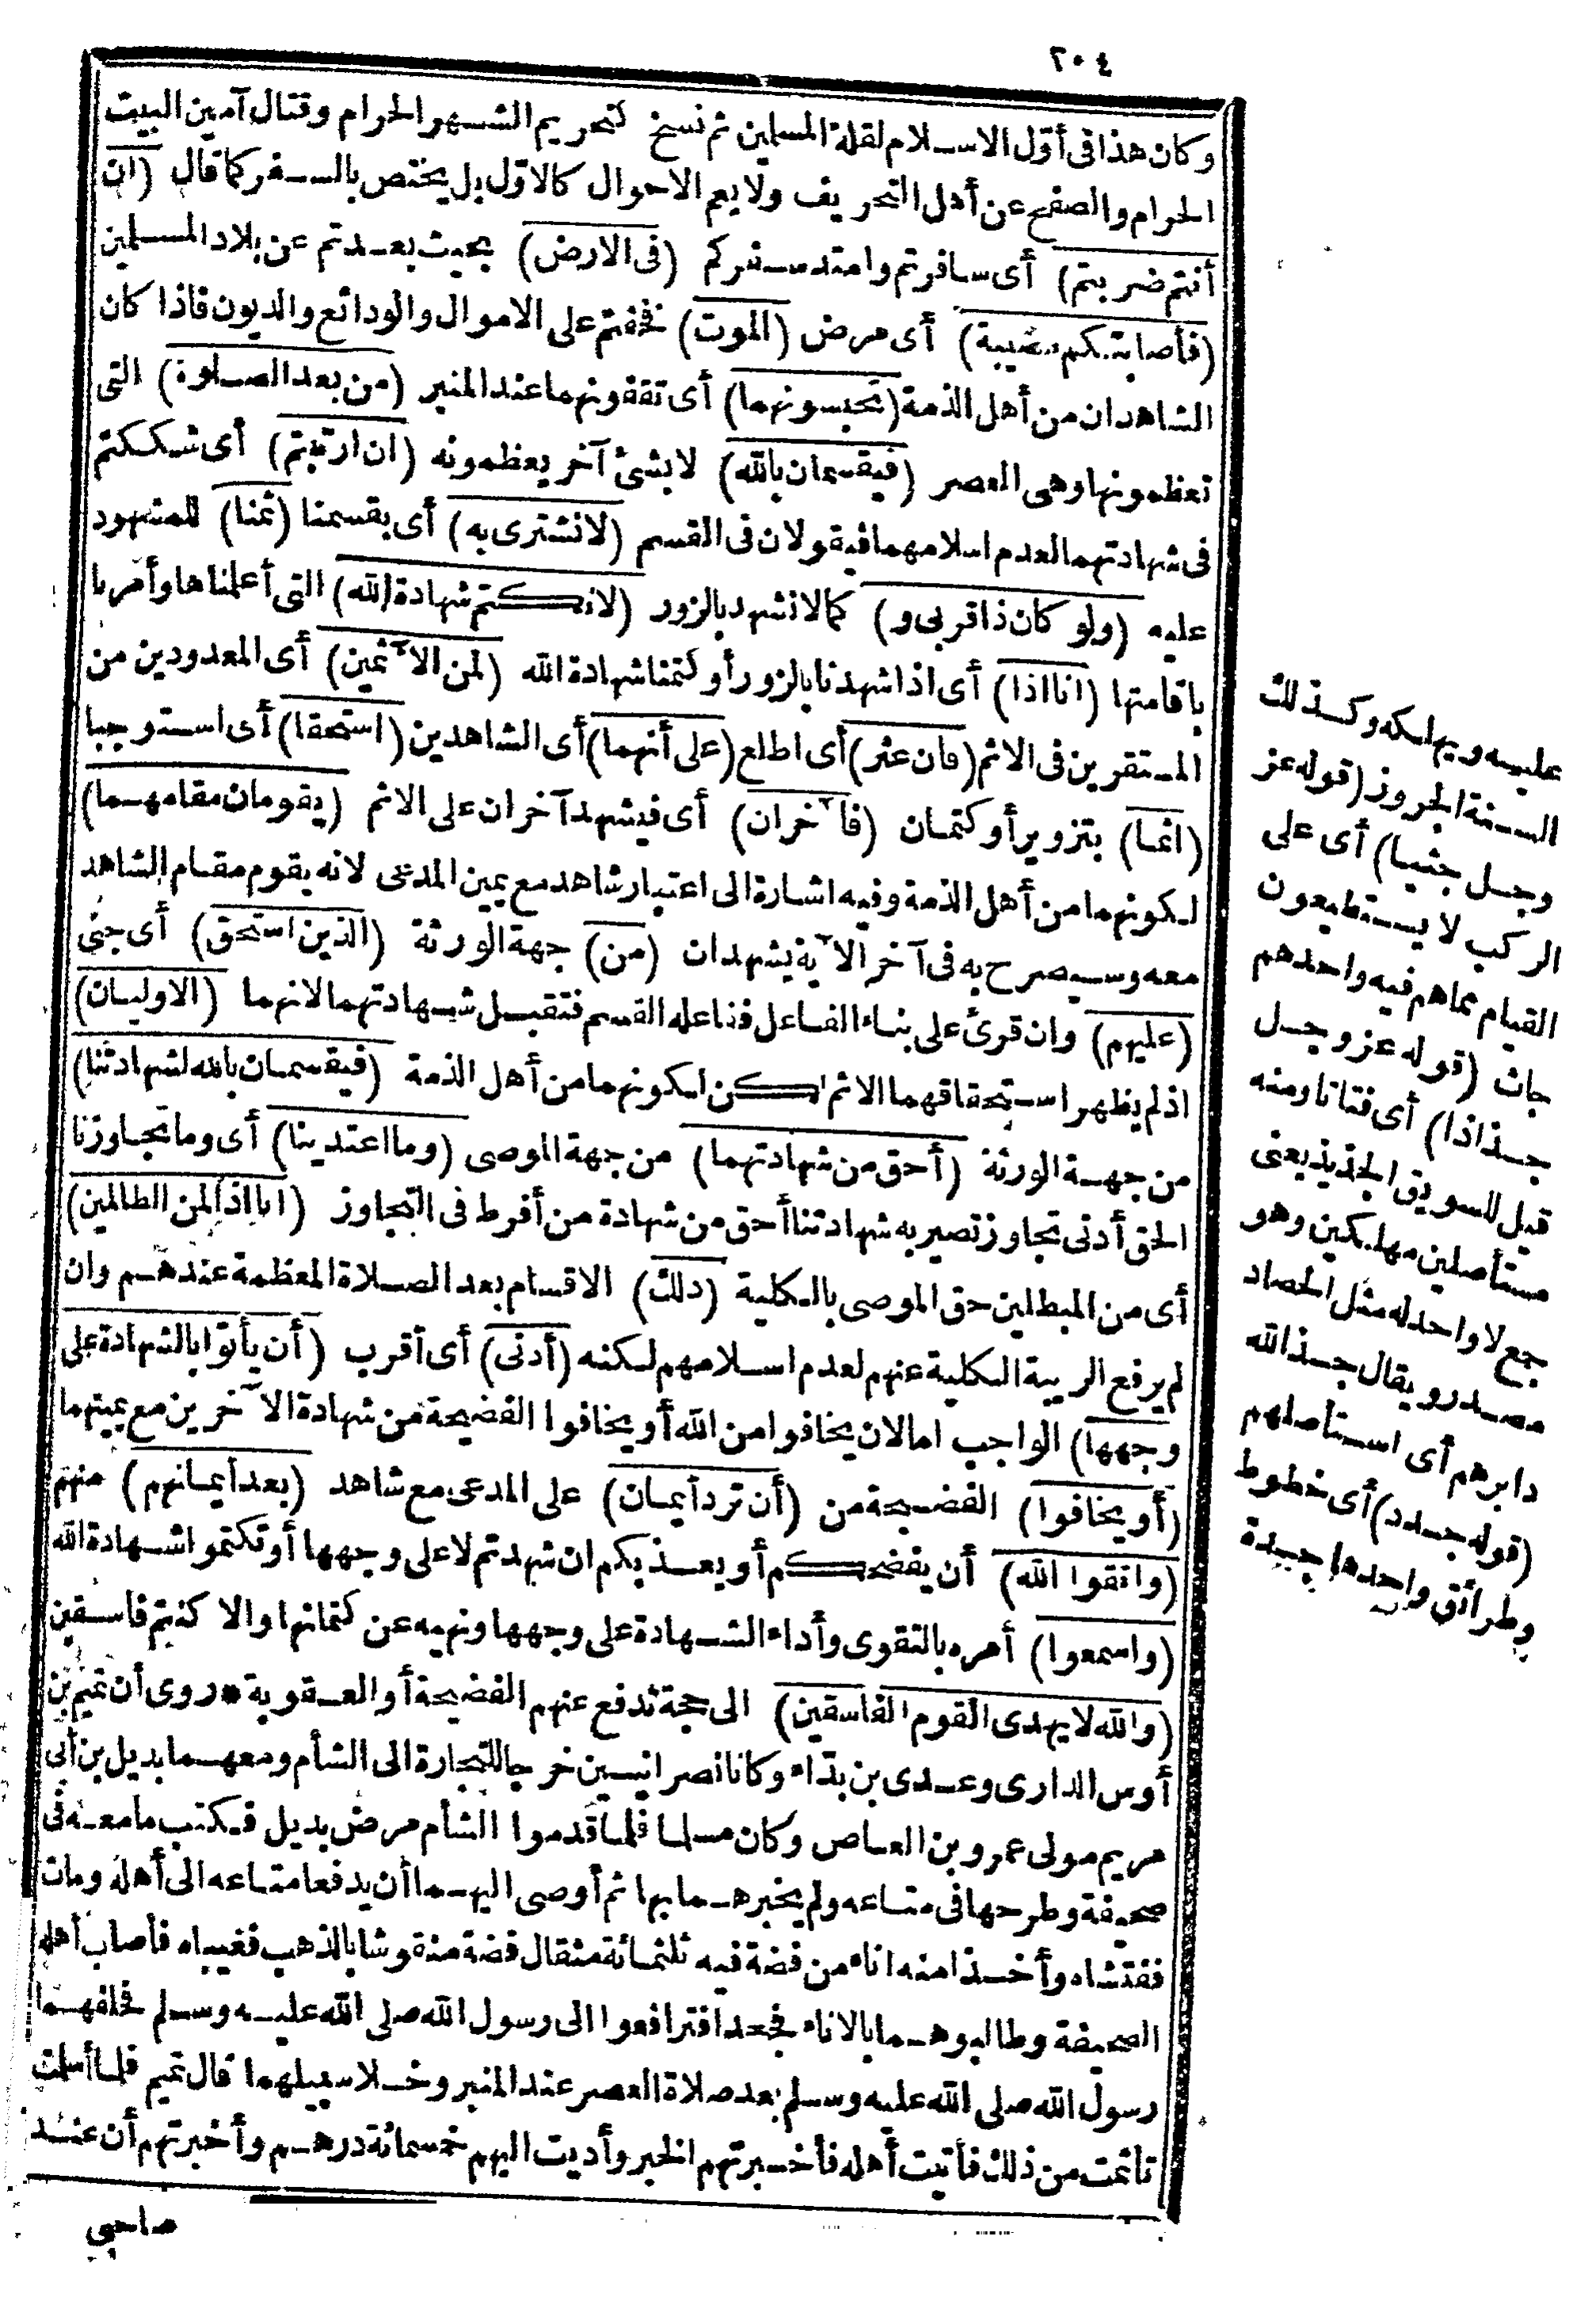 ٢٠٤
وكان هذا فى أوّل الاسلام لقلة المسلمين ثم نسخ كتحريم الشهر الحرام وقتال آمين البيت
الحرام والصفح عن أهل التحريف ولايعم الاحوال كالاوّل بل يختص بالسفر كما قال (ان
أنتم ضربتم) أى سافرتم وامتد سفركم (فى الارض) بحيث بعدتم عن بلاد المسلمين
(فأصابتكم مصيبة) أى مرض (الموت) فخفتم على الاموال والودائع والديون فاذا كان
الشاهدان من أهل الذمة (تحبسونهما) أى تقفونهما عند المنبر (من بعد الصلوة) التى
تعظمونها وهى العصر (فيقسمان بالله) لابشئ آخر يعظمونه (ان ارتبتم) أى شككتم
فى شهادتهما لعدم اسلامهما فيقولان فى القسم (لانشترى به) أى بقسمنا (ثمنا) للمشهود
عليه (ولو كان ذا قربى و) كما لانشهد بالزور (لانكتم شهادة الله) التى أعلمناها وأمرنا
باقامتها (انا اذا) أى اذا شهدنا بالزور أو كتمنا شهادة الله (لمن الآثمين) أى المعدودين من
المستقرين فى الاثم (فان عثر) أى اطلع (على أنهما) أى الشاهدين (استحقا) أى استوجبا
(اثما) بتزوير أو كتمان (فآخران) أى فيشهد آخران على الاثم (يقومان مقامهما)
لكونهما من أهل الذمة وفيه اشارة الى اعتبار شاهد مع يمين المدعى لانه يقوم مقام الشاهد
معه وسيصرح به فى آخر الآية يشهدان (من) جهة الورثة (الذين استحق) أى جنى
(عليهم) وان قرئ على بناء الفاعل ففاعله القسم فتقبل شهادتهما لانهما (الاوليان)
اذ لم يظهر استحقاقهما الاثم لكن لكونهما من أهل الذمة (فيقسمان بالله لشهادتنا)
من جهة الورثة (أحق من شهادتهما) من جهة الموصى (وما اعتدينا) أى وما تجاوزنا
الحق أدنى تجاوز تصير به شهادتنا أحق من شهادة من أفرط فى التجاوز (انا اذا لمن الظالمين)
أى من المبطلين حق الموصى بالكلية (ذلك) الاقسام بعد الصلاة المعظمة عندهم وان
لم يرفع الريبة الكلية عنهم لعدم اسلامهم لكنه (أدنى) أى أقرب (أن يأتوا بالشهادة على
وجهها) الواجب اما لان يخافوا من الله أو يخافوا الفضيحة من شهادة الآخرين مع يمينهما
(أو يخافوا) الفضيحة من (أن ترد أيمان) على المدعى مع شاهد (بعد أيمانهم) منهم
(واتقوا الله) أن يفضحكم أو يعذبكم ان شهدتم لا على وجهها أو تكتموا شهادة الله
(واسمعوا) أمره بالتقوى وأداء الشهادة على وجهها ونهيه عن كتمانها والا كنتم فاسقين
(والله لايهدى القوم الفاسقين) الى حجة تدفع عنهم الفضيحة أو العقوبة * روى أن تميم بن
أوس الدارى وعدى بن بدّاء وكانا نصرانيين خرجا للتجارة الى الشأم ومعهما بديل بن أبى
مريم مولى عمرو بن العاص وكان مسلما فلما قدموا الشأم مرض بديل فكتب ما معه فى
صحيفة وطرحها فى متاعه ولم يخبرهما بها ثم أوصى اليهما أن يدفعا متاعه الى أهله ومات
ففتشاه وأخذا منه اناء من فضة فيه ثلثمائة مثقال فضة منقوشا بالذهب فغيباه فأصاب أهله
الصحيفة وطالبوهما بالاناء فجحدا فترافعوا الى رسول الله صلى الله عليه وسلم فحلفهما
رسول الله صلى الله عليه وسلم بعد صلاة العصر عند المنبر وخلا سبيلهما قال تميم فلما أسلمت
تأثمت من ذلك فأتيت أهله فأخبرتهم الخبر وأديت اليهم خمسمائة درهم وأخبرتهم أن عند
صاحبي
عليه ويهلكه وكذلك
السنة الجروز (قوله عز
وجل جثيا) أى على
الركب لا يستطيعون
القيام مما هم فيه واحدهم
جاث (قوله عز وجل
جذاذا) أى فتاتا ومنه
قيل للسويق الجذيذ يعنى
مستأصلين مهلكين وهو
جمع لا واحد له مثل الحصاد
مصدر ويقال جذ الله
دابرهم أى استأصلهم
(قوله جدد) أى خطوط
وطرائق واحدها جدة